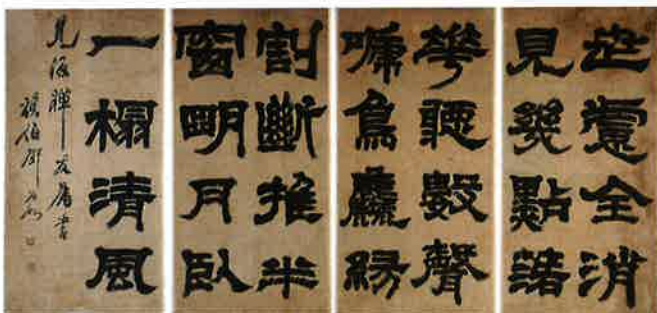 世慮全消
見幾點落
華聽數聲
嗁鳥塵緣
割斷推半
窗明月臥
一榻清風
見禪友屬書
頑伯鄧石如